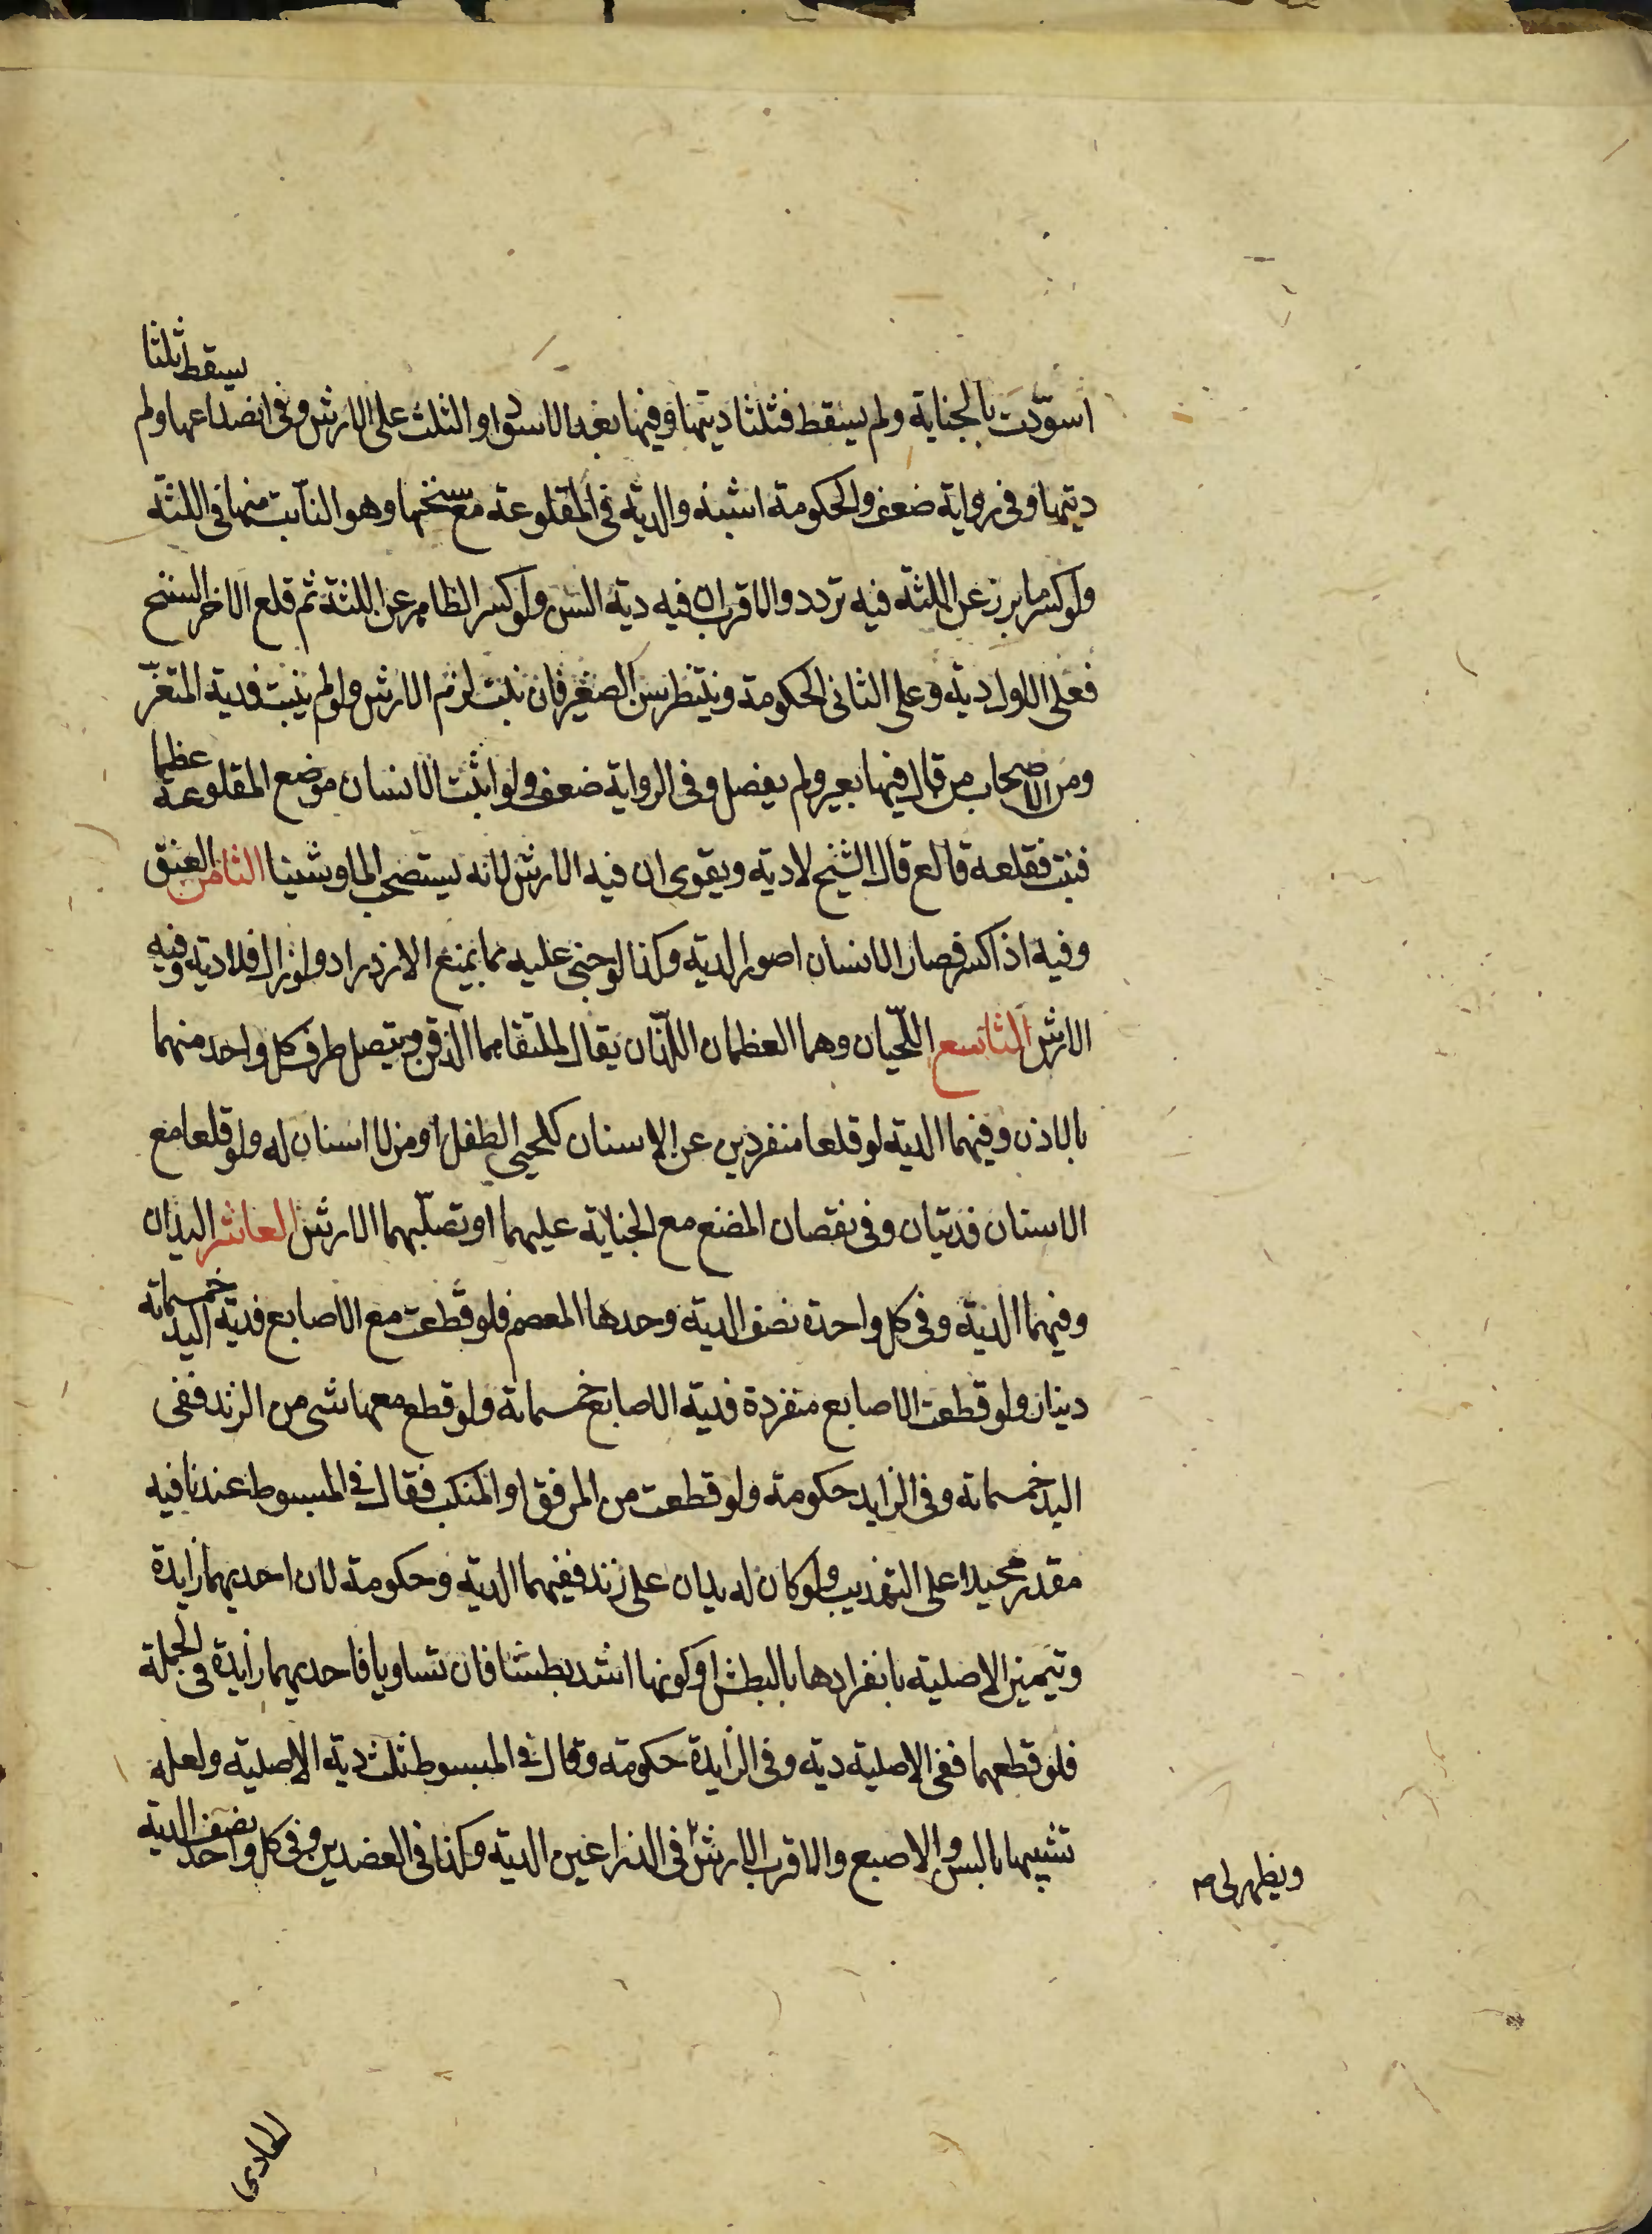 اسوّدت بالجناية ولم يسقط فثلثا ديتها وفيها بعد الاسوداد الثلث على الارش وفى انصداعها ولم يسقط ثلثا
ديتها وفى رواية ضعف والحكومة اشبه والدية فى المقلوعة مع سنخها وهو النابت منها فى اللثة
ولو كسر ما برز عن اللثة فيه تردد والاقرب ان فيه دية السن ولو كسر الظاهر عن اللثة ثم قلع الاخر السنخ
فعلى الاول دية وعلى الثانى الحكومة وينتظر بسن الصغير فان نبت لزم الارش ولو لم ينبت فدية المثغر
ومن الاصحاب من قال فيها بعير ولم يفصل وفى الرواية ضعف ولو اثبت الانسان موضع المقلوعة عظما
فنبت فقلعه قالع قال الشيخ لا دية ويقوى ان فيه الارش لانه يستصحب الما وشينا الثامن العنق
وفيه اذا كسر فصار الانسان اصور الدية وكذا لو جنى عليه بما يمنع الازدراد ولو زال فلا دية وفيه
الارش التاسع اللّحيان وهما العظمان اللذان يقال لملتقاهما الذقن ويتصل طرف كل واحد منهما
بالاذن وفيهما الدية لو قلعا منفردين عن الاسنان كلحيى الطفل او من لا اسنان له ولو قلعا مع
الاسنان فديتان وفى نقصان المضغ مع الجناية عليهما او تصلّبهما الارش العاشر اليدان
وفيهما الدية وفى كل واحدة نصف الدية وحدها المعصم فلو قطعت مع الاصابع فدية اليد خمسمائة
دينار ولو قطعت الاصابع منفردة فدية الاصابع خمسمائة ولو قطع معها شى من الزند ففى
اليد خمسمائة وفى الزايد حكومة ولو قطعت من المرفق او المنكب فقال فى المبسوط عندنا فيه
مقدر محيلا على التهذيب ولو كان له يدان على زند ففيهما الدية وحكومة لان احديهما زايدة
وتيميز الاصلية بانفرادها بالبطش او كونها اشد بطشا فان تساويا فاحديهما زايدة فى الجملة
فلو قطعهما ففى الاصلية دية وفى الزايدة حكومة وقال فى المبسوط ثلث دية الاصلية ولعله
تشبيها بالسن والاصبع والاقرب الارش فى الذراعين الدية وكذا فى العضدين وفى كل واحد نصف الدية
ويظهر لى
الحادى